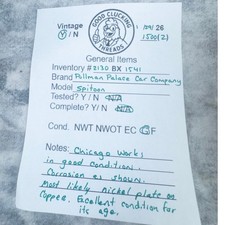 Vintage
Y / N
GOOD CLUCKING
THREADS
General Items
Inventory # 2130 BX 1541
Brand Pullman Palace Car Company
Model Spitoon
Tested? Y / N N/A
Complete? Y / N N/A
Cond. NWT NWOT EC G F
Notes: Chicago Works
in good condition.
Corrosion as shown.
Most likely nickel plate on
Copper. Excellent condition for
its age.